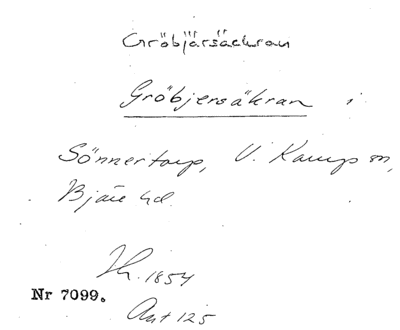 Gröbjärsäckran
Gröbjersäkran i
Sönnertorp, V. Karups sn,
Bjäre hd.
1854
Nr 7099.
Akt 125